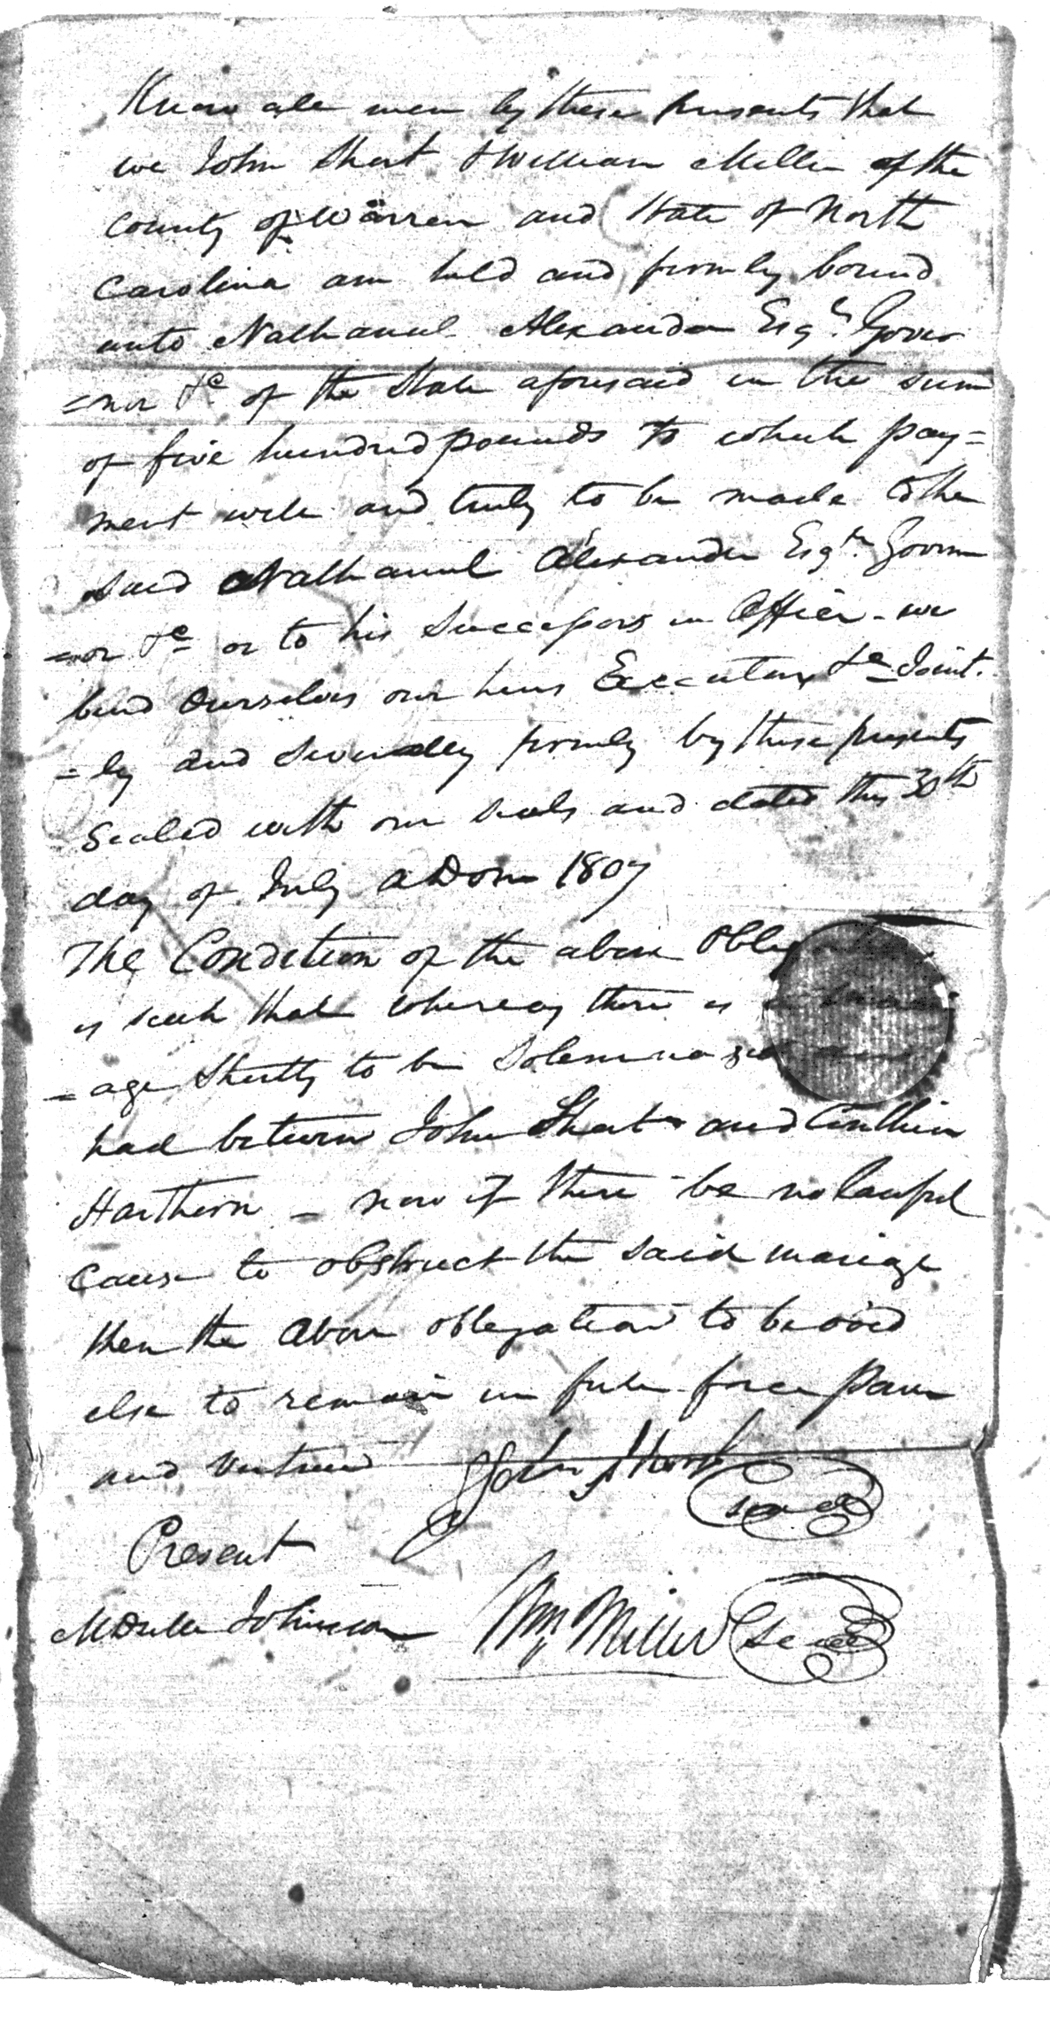 Know all men by these presents that
we John Short & William Miller of the
County of Warren and State of North
Carolina am held and firmly bound
unto Nathanael Alexander Esqr. Gover
=nor &c of the State aforesaid in the sum
of five hundred pounds to which pay=
ment well and truly to be made to the
said Nathanael Alexander Esqr. Govern
=or &c or to his Successors in Office - we
bind Ourselves our heirs Executors &c Joint.
=ly and Severally firmly by these presents
Sealed with our seals and dated this 30th
day of July ADom 1807
The Condition of the above
is such that whereas there is a
=age Shortly to be Solemnazed and
had between John Short and
Harthorn - now if there be no lawful
Cause to obstruct the said mariage
then the above obligation to be void
else to remain in full force power
and vertue
John Short
Seal
Present
Johnson
Wm Miller Seal